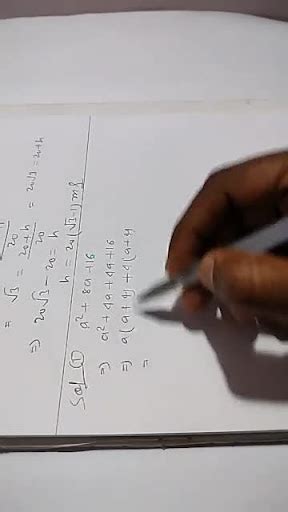 = √3 = 20+h / 20 = 20√3 = 20+h
⇒ 20√3 - 20 = h
h = 20(√3-1) m
Sol ①
a² + 8a + 16
⇒ a² + 4a + 4a + 16
⇒ a(a+4) + 4(a+4
=